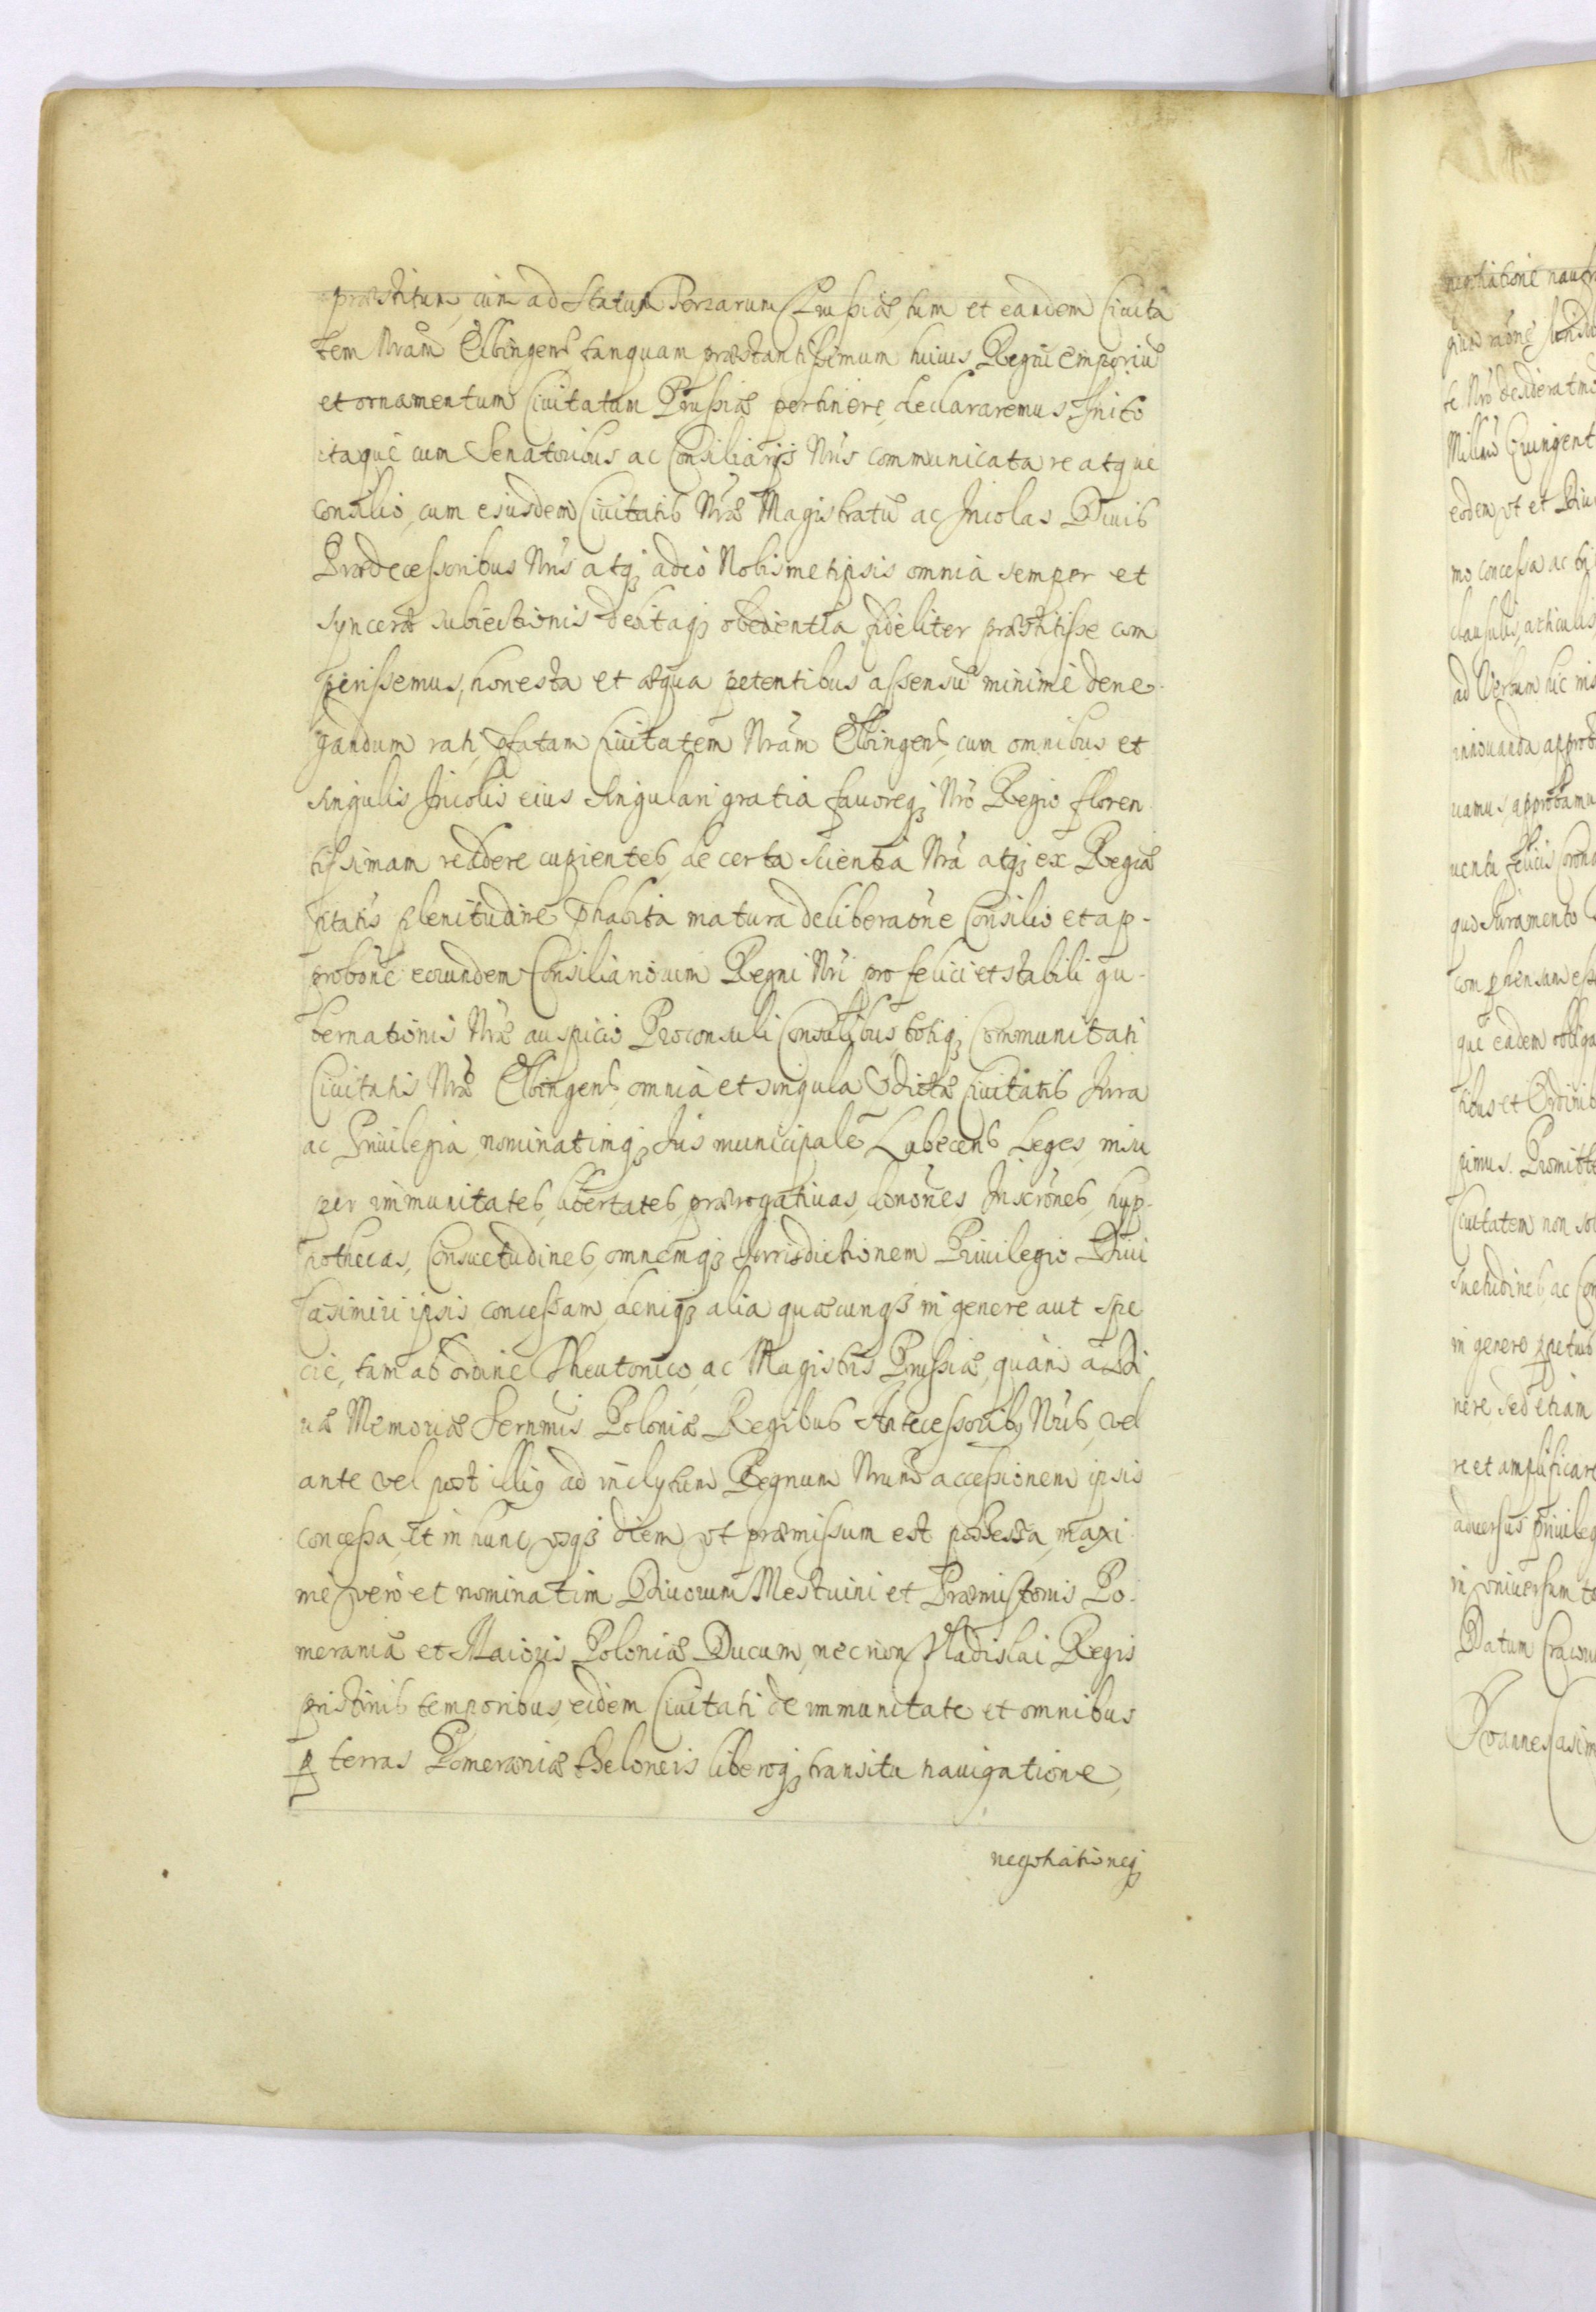 præstitum, cùm ad Statum Terrarum Prussiæ, tum et eandem Ciuita
tem Nrãm Elbingens tanquam præstantissimum huius Regni Emporiũ
et ornamentum Ciuitatum Prussiæ pertinere, declararemus. Inito
itaque cum Senatoribus ac Consiliarijs Nrĩs communicata re atque
consilio, cum eiusdem Ciuitatis Nræ Magistratũ ac Incolas Diuis
Prædecessoribus Nrĩs atq; adeò Nobismetipsis omnia semper et
synceræ subiectionis debitaq; obedientia fideliter præstitisse com
perissemus, honesta et æqua petentibus assensũ minimè dene-
gandum rati, pfatam Ciuitatem Nrãm Elbingens, cum omnibus et
singulis Incolis eius singulari gratia fauoreq; Nrõ Regio floren
tissimam reddere cupientes, de certa scientia Nrã atq; ex Regiæ
ptatis plenitudine phabita matura deliberaõne Consilio et ap-
probõne eorundem Consiliariorum Regni Nrĩ pro felici et stabili gu-
bernationis Nræ auspicio Proconsuli Consulibus, totiq; Communitati
Ciuitatis Nræ Elbingens, omnia et singula pdictæ Ciuitatis Jura
ac Priuilegia, nominatimq; Jus municipale Lubecens Leges, insu
per immunitates, libertates, prærogatiuas, donões Inscrões, hyp-
pothecas, Consuetudines, omnemq; Jurisdictionem Priuilegio Diui
Casimiri ipsis concessam, deniq; alia quæcunq; in genere aut spe
cie, tam ab ordine Theutonico, ac Magistris Prussiæ, quàm à Di
uæ Memoriæ Sernmis Poloniæ Regibus Antecessorib9 Nrĩs, vel
ante vel post illi9 ad inclytum Regnum Nrum accessionem ipsis
concessa, et in hunc vsq; diem vt præmissum est possessa, maxi
mè verò et nominatim Diuorum Mestuini et Præmistonis Po-
meraniæ et Maioris Poloniæ Ducum, necnon Vladislai Regis
pristinis temporibus, eidem Ciuitati de immunitate et omnibus
p terras Pomeraniæ theloneis liberoq; transitu nauigatione,
negotiationeq;